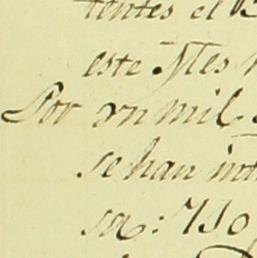 tentes el
este Mes
Por vn mil
se han
sa: 710